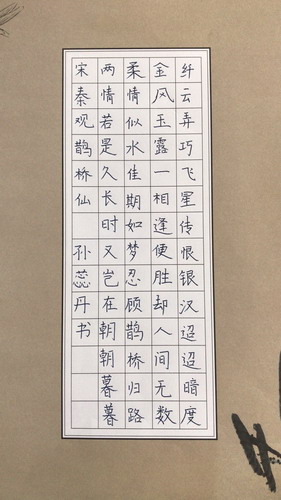 纤云弄巧飞星传恨银汉迢迢暗度
金风玉露一相逢便胜却人间无数
柔情似水佳期如梦忍顾鹊桥归路
两情若是久长时又岂在朝朝暮暮
宋秦观鹊桥仙 孙蕊丹书